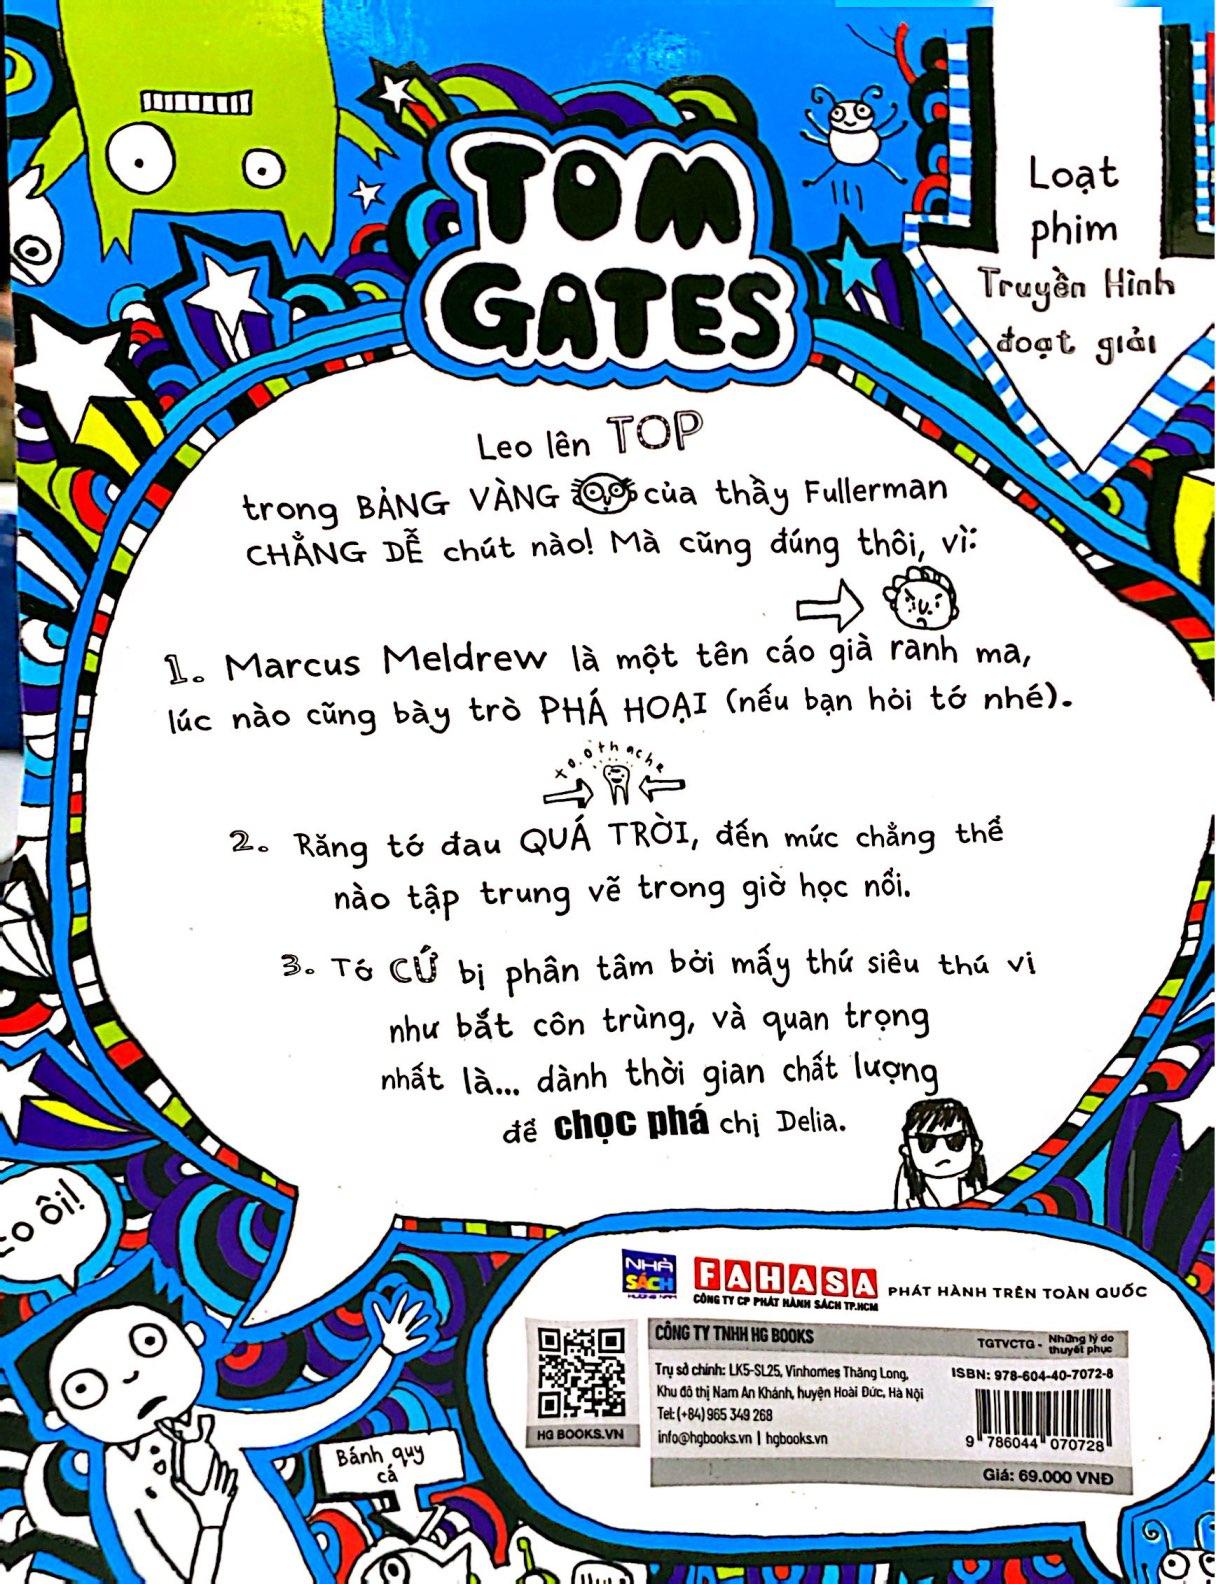 TOM
GATES
Loạt
phim
Truyền Hình
đoạt giải
Leo lên TOP
trong BẢNG VÀNG của thầy Fullerman
CHẲNG DỄ chút nào! Mà cũng đúng thôi, vì:
1. Marcus Meldrew là một tên cáo già ranh ma,
lúc nào cũng bày trò PHÁ HOẠI (nếu bạn hỏi tớ nhé).
to.othache
2. Răng tớ đau QUÁ TRỜI, đến mức chẳng thể
nào tập trung vẽ trong giờ học nổi.
3. Tớ CỨ bị phân tâm bởi mấy thứ siêu thú vị
như bắt côn trùng, và quan trọng
nhất là... dành thời gian chất lượng
để chọc phá chị Delia.
ôi!
NHÀ
SÁCH
FAHASA
CÔNG TY CP PHÁT HÀNH SÁCH TP.HCM
PHÁT HÀNH TRÊN TOÀN QUỐC
HG BOOKS.VN
CÔNG TY TNHH HG BOOKS
TGTVCTG - Những lý do
thuyết phục
Trụ sở chính: LK5-SL25, Vinhomes Thăng Long,
Khu đô thị Nam An Khánh, huyện Hoài Đức, Hà Nội
Tel: (+84) 965 349 268
info@hgbooks.vn | hgbooks.vn
ISBN: 978-604-40-7072-8
9 786044 070728
Giá: 69.000 VNĐ
Bánh quy
cá